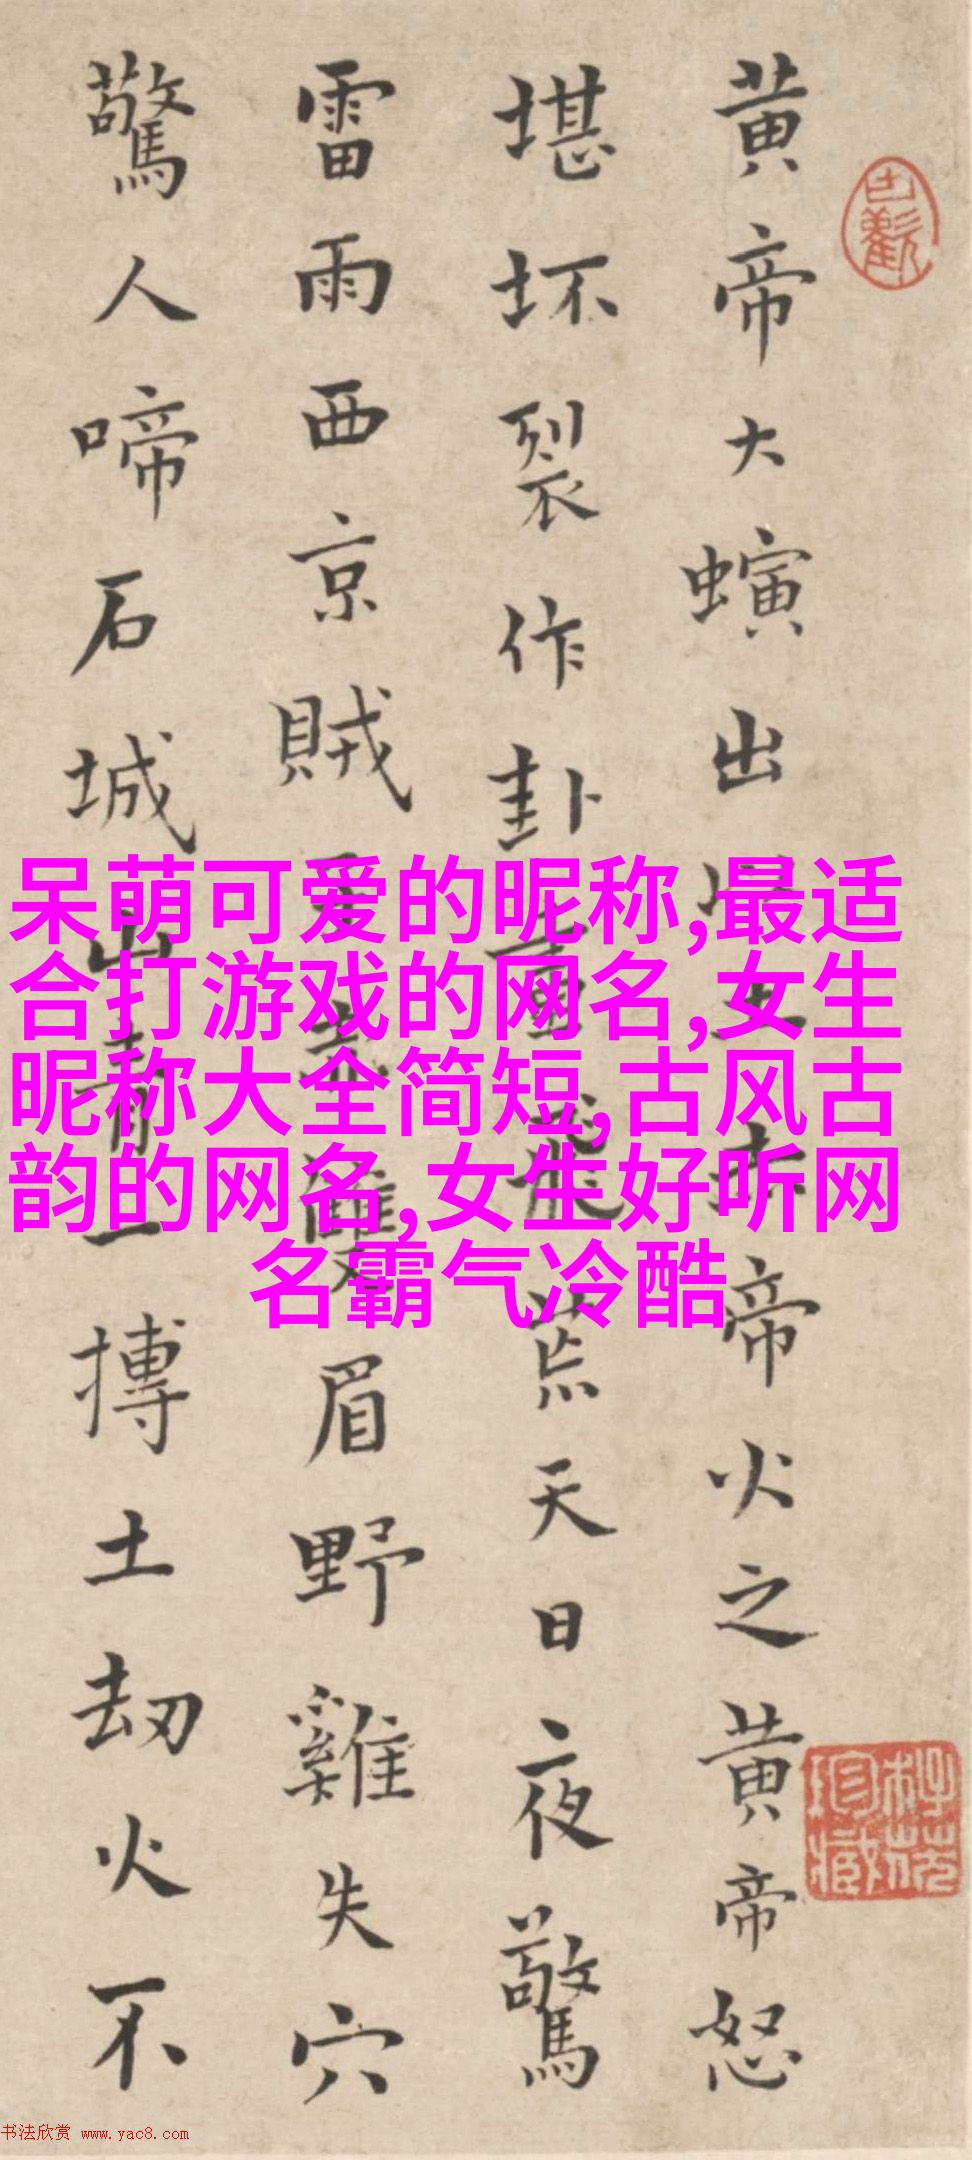 黄帝大螾出土赤帝火之黄帝怒
堪坏裂作卦重飛荒天日夜驚
雷雨西京賊雙眉野雞失穴
驚人啼石城山青一搏土劫火不
呆萌可爱的昵称,最适
合打游戏的网名,女生
昵称大全简短,古风古
韵的网名,女生好听网
名霸气冷酷
书法欣赏 www.yac8.com